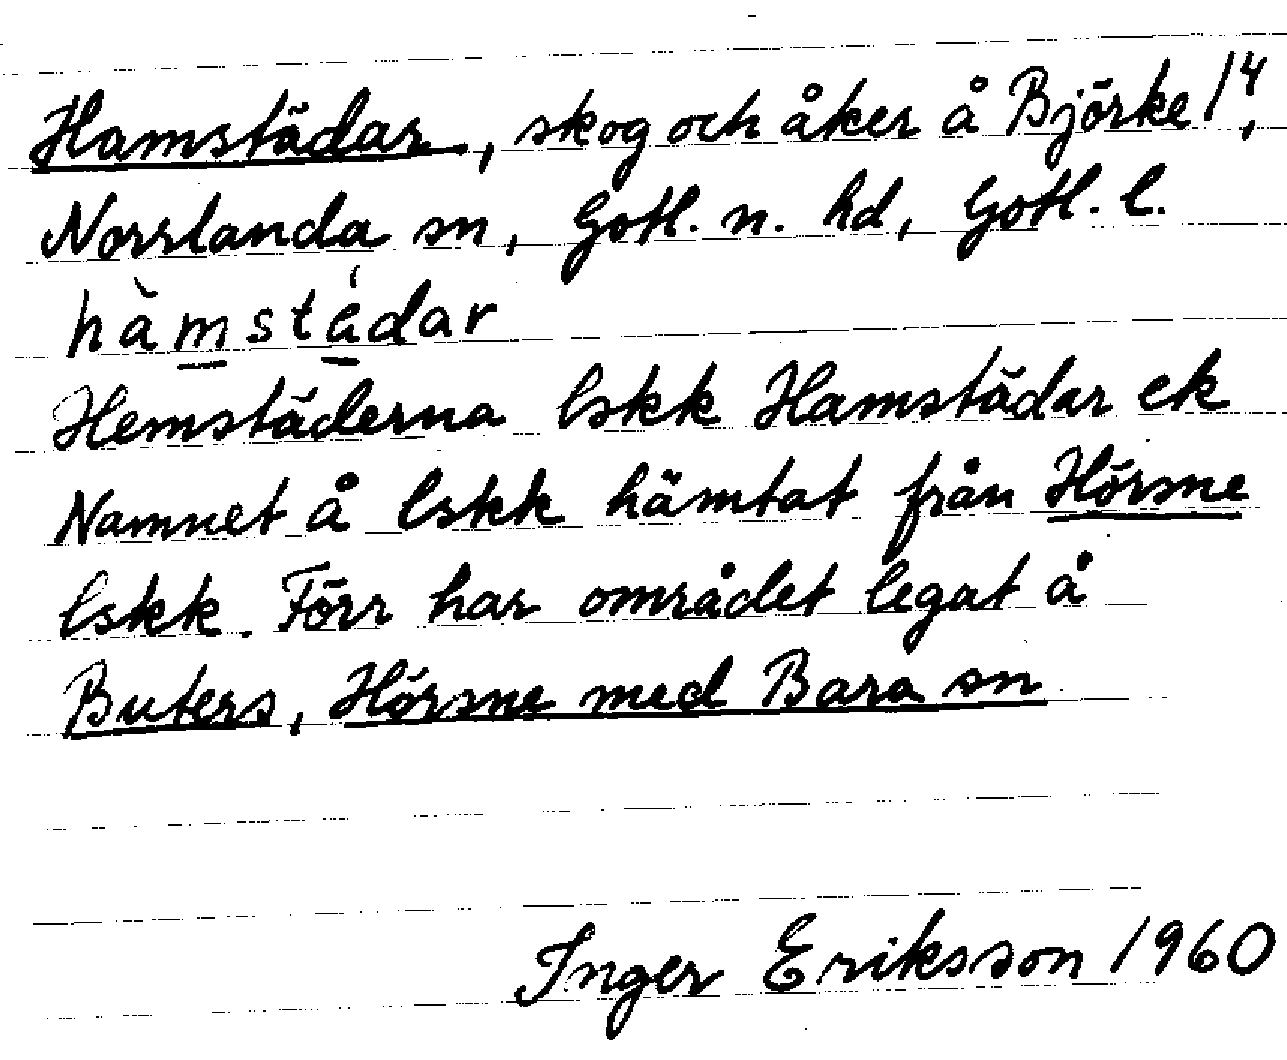 Hamstädar, skog och åker å Björke 1⁴,
Norrlanda sn, Gotl. n. hd, Gotl. l.
hàmstádar
Hemstäderna lskk Hamstädar ek
Namnet å lskk hämtat från Hörsne
lskk. Förr har området legat å
Buters, Hörsne med Bara sn
Inger Eriksson 1960